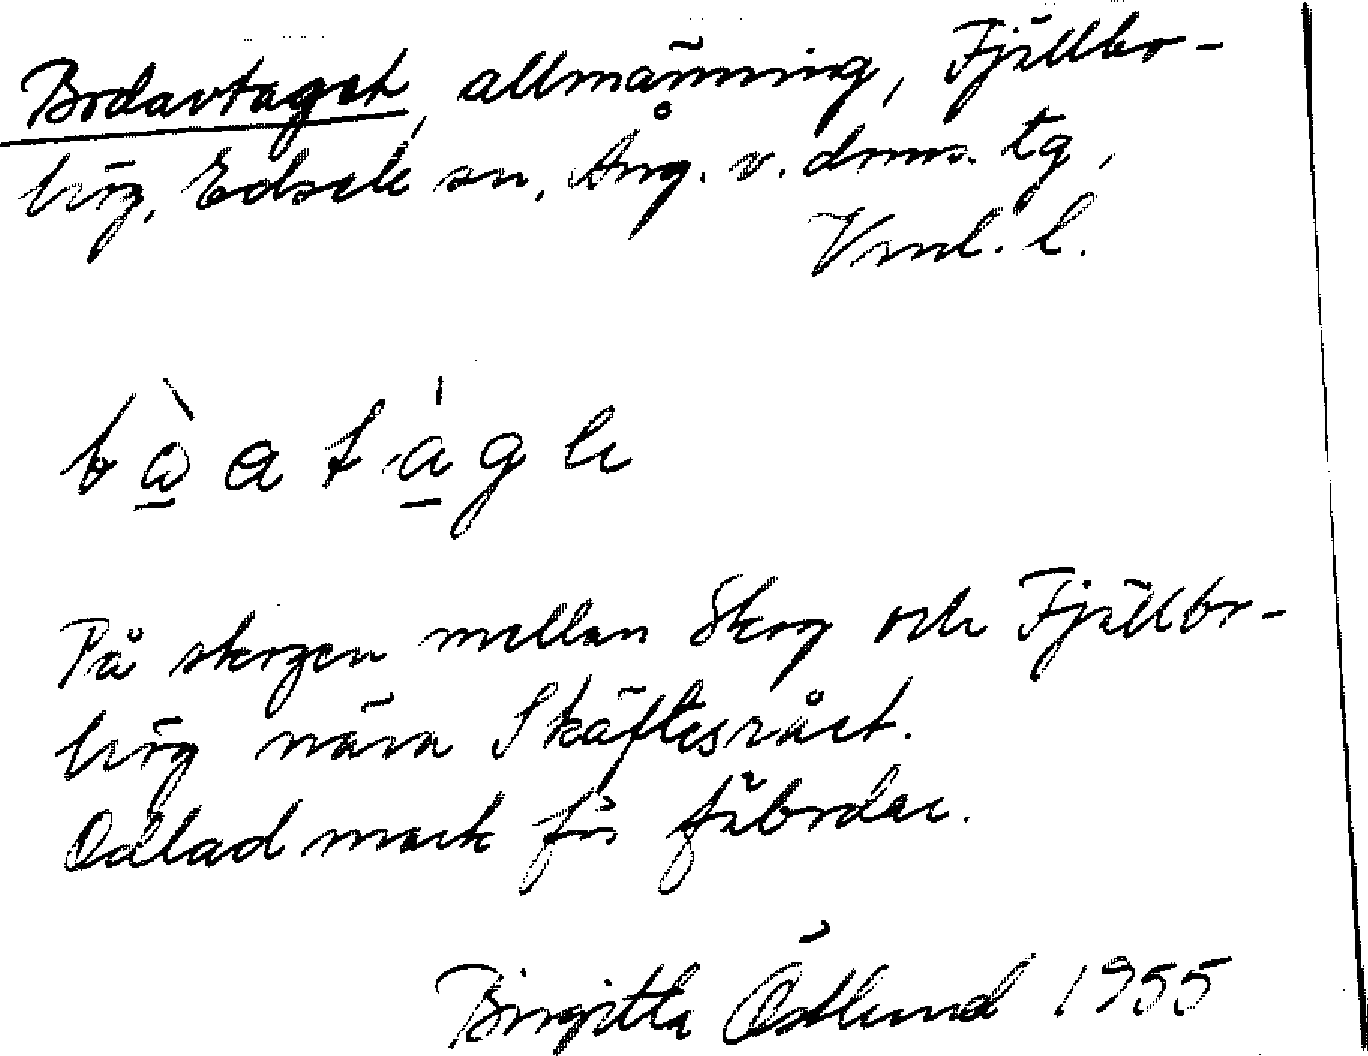 Bodavtaget, allmänning, Fjällbo-
hög, Edsele sn, Ång. v. doms. tg,
Vnl. l.
På skogen mellan Skog och Fjällbo-
hög nära Skäftesrået.
Odlad mark för fäbodar.
Birgitta Östlund 1955